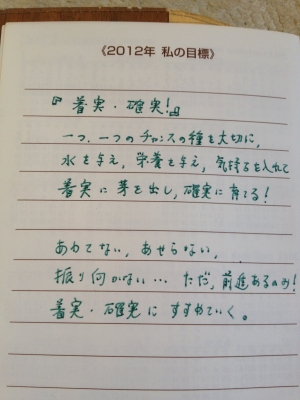 《2012年 私の目標》
『着実・確実!』
一つ、一つのチャンスの種を大切に、
水を与え、栄養を与え、気持ちを入れて
着実に芽を出し、確実に育てる!
あわてない、あせらない、
振り向かない… ただ、前進あるのみ!
着実・確実にすすめていく。